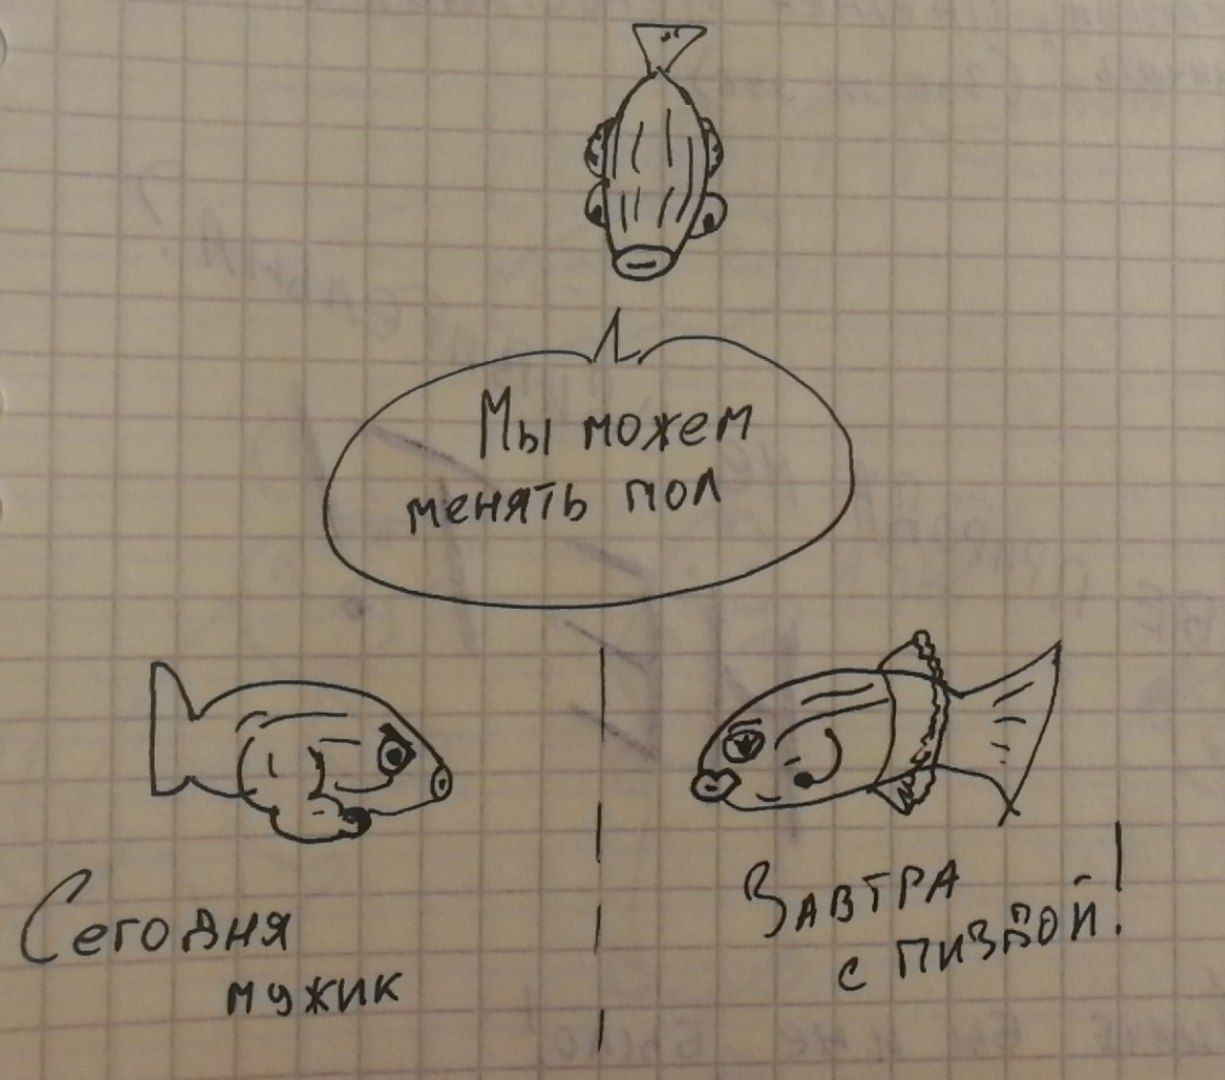 Мы можем
менять пол
Сегодня
мужик
Завтра
с пиздой!